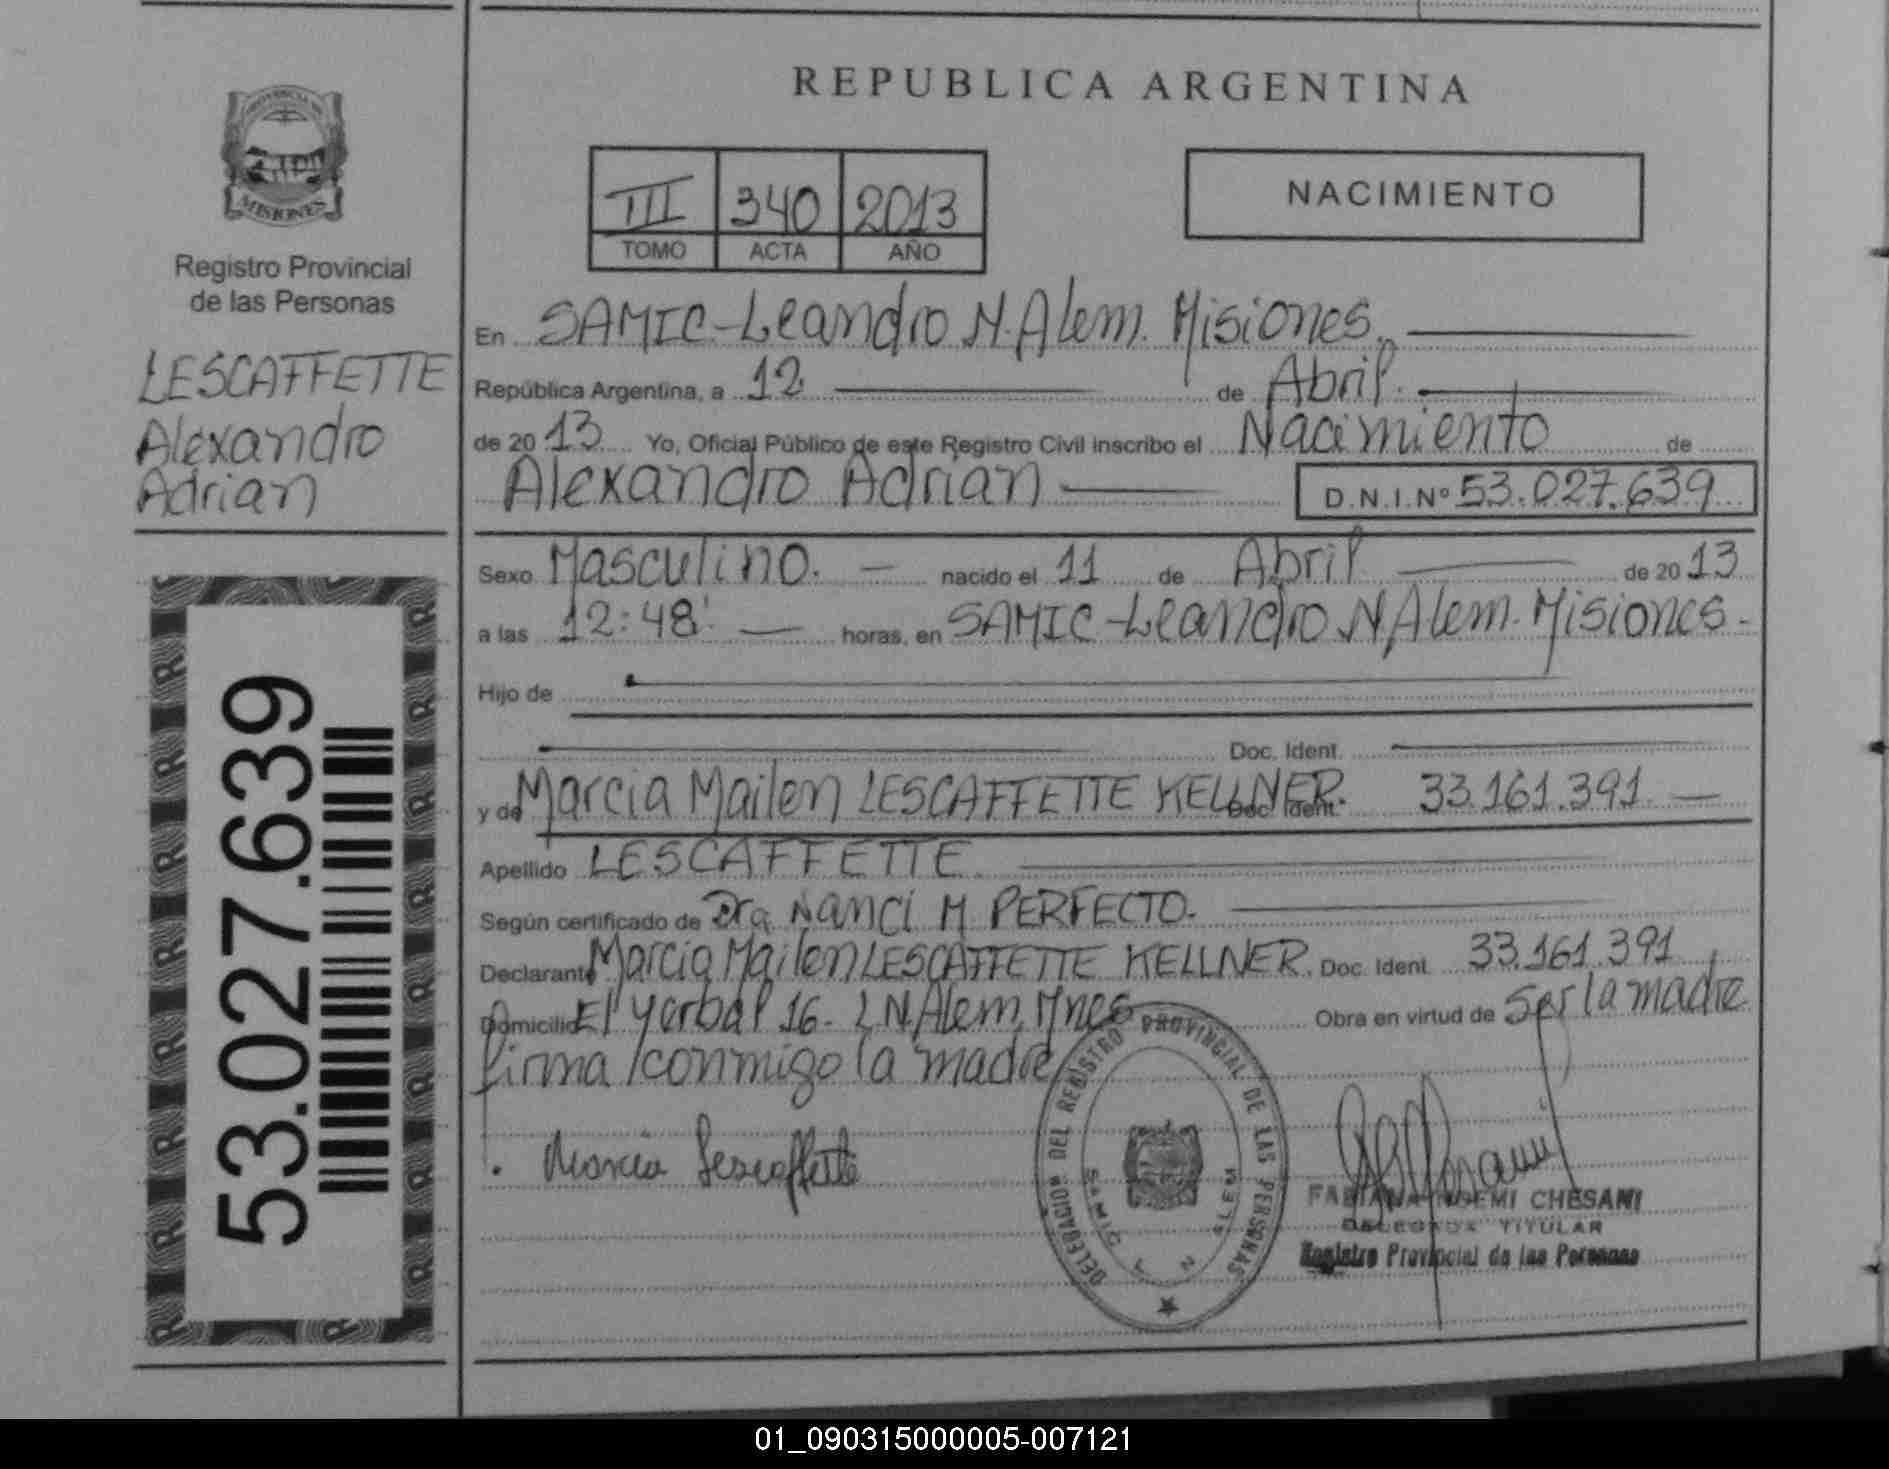 REPUBLICA ARGENTINA
PROVINCIA DE
MISIONES
Registro Provincial
de las Personas
LESCAFFETTE
Alexandro
Adrian
53.027.639
III 340 2013
TOMO ACTA AÑO
NACIMIENTO
En SAMIC-Leandro N. Alem. Misiones.
República Argentina, a 12 de Abril.
de 20 13 Yo, Oficial Público de este Registro Civil inscribo el Nacimiento de
Alexandro Adrian D.N.I.Nº 53.027.639
Sexo Masculino. nacido el 11 de Abril de 20 13
a las 12:48' horas, en SAMIC-Leandro N. Alem. Misiones.
Hijo de
Doc. Ident.
y de Marcia Mailen LESCAFFETTE KELLNER. Doc. Ident. 33.161.391
Apellido LESCAFFETTE
Según certificado de Dra Nanci M PERFECTO.
Declarante Marcia Mailen LESCAFFETTE KELLNER. Doc. Ident. 33.161.391
Domicilio El Yerbal 16. L N Alem, Mnes Obra en virtud de Ser la madre
firma conmigo la madre
Marcia Lescaffette
DELEGACION DEL REGISTRO PROVINCIAL DE LAS PERSONAS
SAMIC L N ALEM
FABIANA NOEMI CHESANI
DELEGADA TITULAR
Registro Provincial de las Personas
01_090315000005-007121